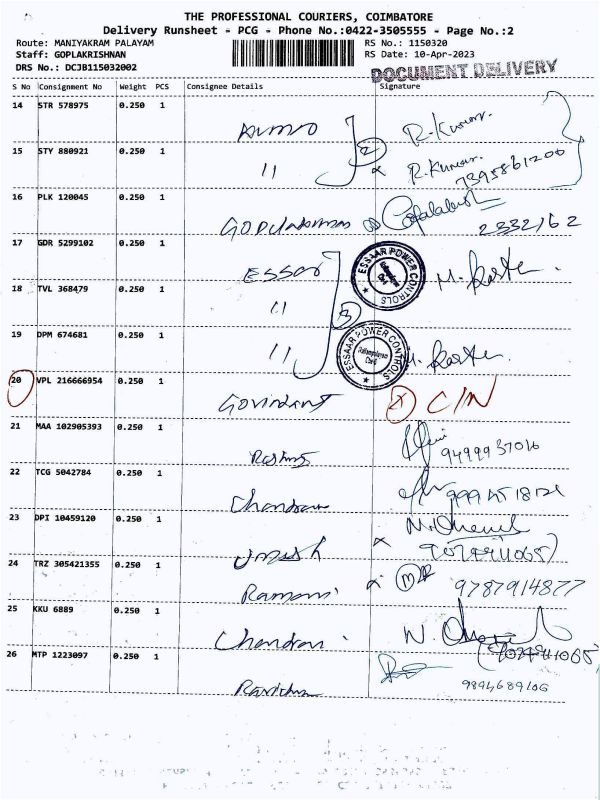 THE PROFESSIONAL COURIERS, COIMBATORE
Delivery Runsheet - PCG - Phone No.:0422-3505555 - Page No.:2
Route: MANIYAKRAM PALAYAM RS No.: 1150320
Staff: GOPLAKRISHNAN RS Date: 10-Apr-2023
DRS No.: DCJB115032002
DOCUMENT DELIVERY
S No Consignment No Weight PCS Consignee Details Signature
14 STR 578975 0.250 1 R.Kumar.
15 STY 880921 0.250 1 11 R.Kumar.
7395861200
16 PLK 120045 0.250 1
2332162
17 GDR 5299102 0.250 1 ESSAR
ESSAAR POWER CONTROLS
18 TVL 368479 0.250 1 11 3
19 DPM 674681 0.250 1 11
ESSAAR POWER CONTROLS
20 VPL 216666954 0.250 1 C/N
21 MAA 102905393 0.250 1
9499937016
22 TCG 5042784 0.250 1 Chandran
23 DPI 10459120 0.250 1 Umesh
24 TRZ 305421355 0.250 1 Ramani 9787914877
25 KKU 6889 0.250 1 Chandran
26 MTP 1223097 0.250 1
9894689106